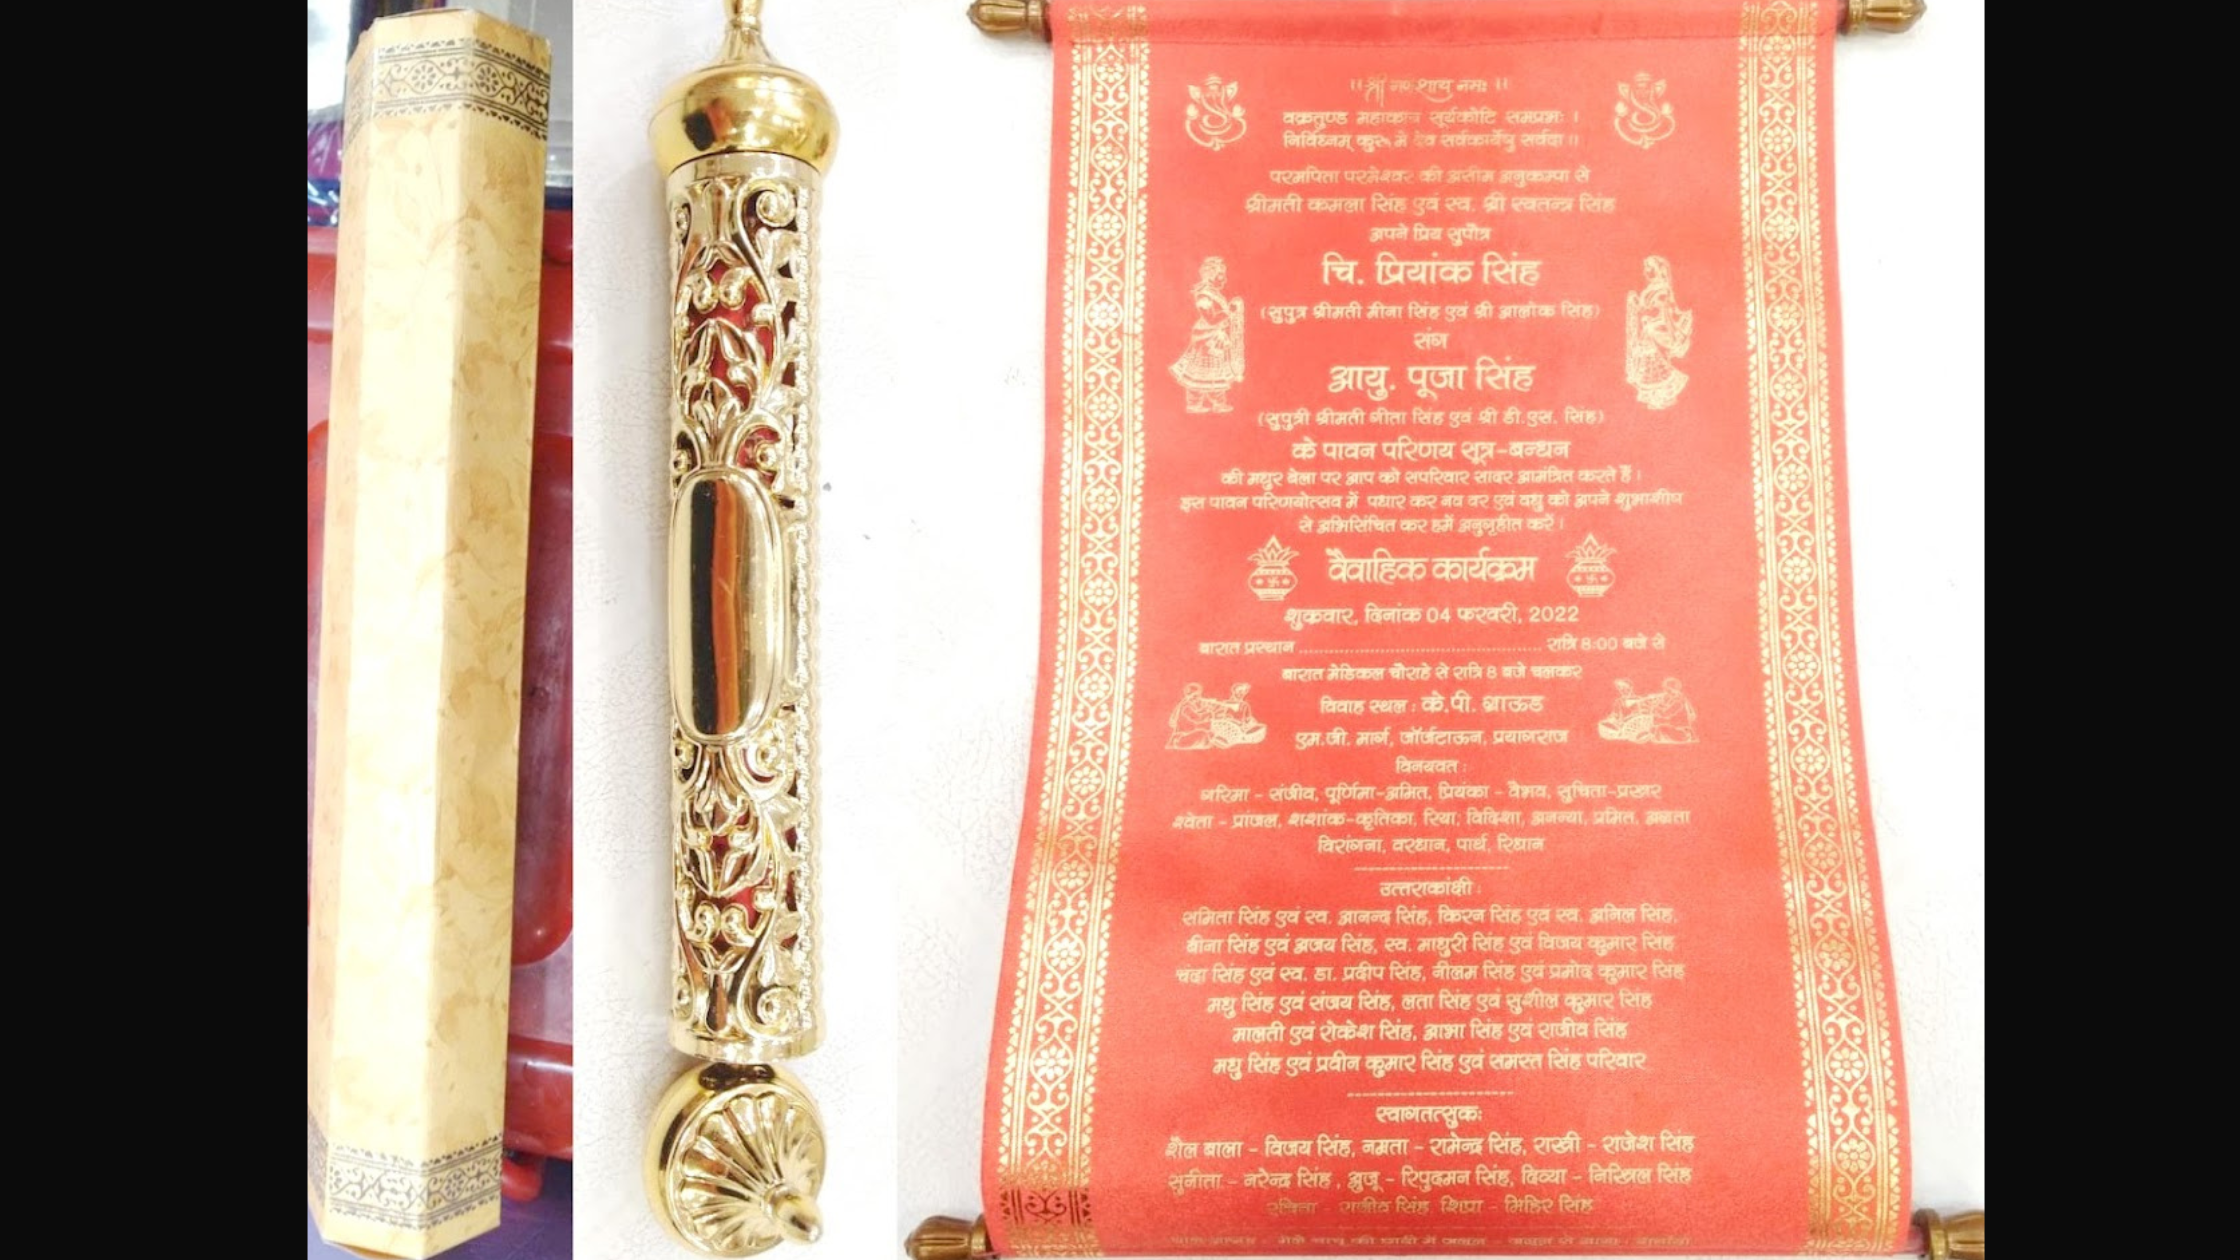 ।। श्री गणेशाय नमः ।।
वक्रतुण्ड महाकाय सूर्यकोटि समप्रभः ।
निर्विघ्नम् कुरू मे देव सर्वकार्येषु सर्वदा ।।
परमपिता परमेश्वर की असीम अनुकम्पा से
श्रीमती कमला सिंह एवं स्व. श्री स्वतन्त्र सिंह
अपने प्रिय सुपौत्र
चि. प्रियांक सिंह
(सुपुत्र श्रीमती मीना सिंह एवं श्री आलोक सिंह)
संग
आयु. पूजा सिंह
(सुपुत्री श्रीमती गीता सिंह एवं श्री डी.एस. सिंह)
के पावन परिणय सूत्र-बन्धन
की मधुर बेला पर आप को सपरिवार सादर आमंत्रित करते हैं।
इस पावन परिणयोत्सव में पधार कर नव वर एवं वधु को अपने शुभाशीष
से अभिसिंचित कर हमें अनुगृहीत करें।
वैवाहिक कार्यक्रम
शुक्रवार, दिनांक 04 फरवरी, 2022
बारात प्रस्थान ........................................ रात्रि 8:00 बजे से
बारात मेडिकल चौराहे से रात्रि 8 बजे चलकर
विवाह स्थल : के.पी. ग्राउड
एम.जी. मार्ग, जॉर्जटाऊन, प्रयागराज
विनयवत :
गरिमा - संजीव, पूर्णिमा-अमित, प्रियंका - वैभव, सुचिता-प्रखर
श्वेता - प्रांजल, शशांक-कृतिका, रिया, विदिशा, अनन्या, प्रमित, अग्रता
विरांगना, वरधान, पार्थ, रिधान
उत्तराकांक्षी :
समिता सिंह एवं स्व. आनन्द सिंह, किरन सिंह एवं स्व. अनिल सिंह,
बीना सिंह एवं अजय सिंह, स्व. माधुरी सिंह एवं विजय कुमार सिंह
चंदा सिंह एवं स्व. डा. प्रदीप सिंह, नीलम सिंह एवं प्रमोद कुमार सिंह
मधु सिंह एवं संजय सिंह, लता सिंह एवं सुशील कुमार सिंह
मालती एवं रोकेश सिंह, आभा सिंह एवं राजीव सिंह
मधु सिंह एवं प्रवीन कुमार सिंह एवं समस्त सिंह परिवार
स्वागतत्सुकः
शैल बाला - विजय सिंह, नम्रता - रामेन्द्र सिंह, राखी - राजेश सिंह
सुनीता - नरेन्द्र सिंह, अुजू - रिपुदमन सिंह, दिव्या - निखिल सिंह
राजीव सिंह, शिप्रा - मिहिर सिंह